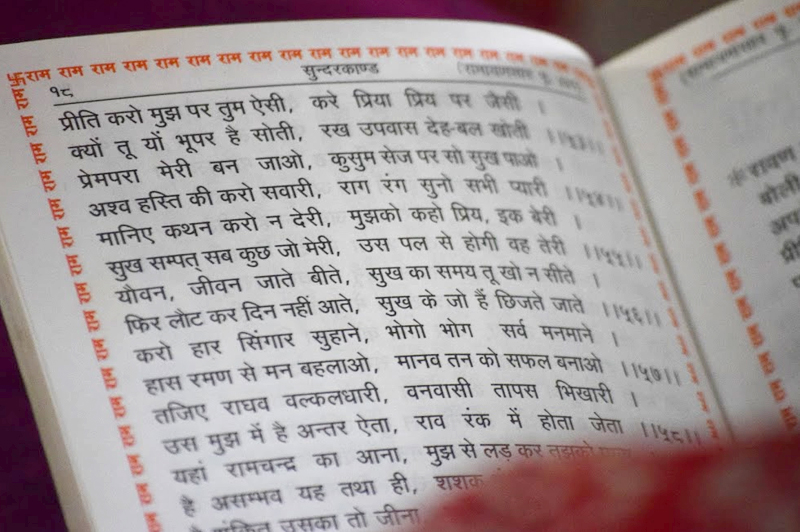 卐 राम राम राम राम राम राम राम राम राम राम राम राम राम राम राम राम राम
सुन्दरकाण्ड
१८
प्रीति करो मुझ पर तुम ऐसी, करे प्रिया प्रिय पर जैसी ।
क्यों तू यों भूपर है सोती, रख उपवास देह-बल खोती ।।५३।।
प्रेमपरा मेरी बन जाओ, कुसुम सेज पर सो सुख पाओ ।
अश्व हस्ति की करो सवारी, राग रंग सुनो सभी प्यारी ।।५४।।
मानिए कथन करो न देरी, मुझको कहो प्रिय, इक बेरी ।
सुख सम्पत् सब कुछ जो मेरी, उस पल से होगी वह तेरी ।।५५।।
यौवन, जीवन जाते बीते, सुख का समय तू खो न सीते ।
फिर लौट कर दिन नहीं आते, सुख के जो हैं छिजते जाते ।।५६।।
करो हार सिंगार सुहाने, भोगो भोग सर्व मनमाने ।
हास रमण से मन बहलाओ, मानव तन को सफल बनाओ ।।५७।।
तजिए राघव वल्कलधारी, वनवासी तापस भिखारी ।
उस मुझ में है अन्तर ऐता, राव रंक में होता जेता ।।५८।।
यहां रामचन्द्र का आना, मुझ से लड़ कर तुझको
है असम्भव यह तथा ही, शशक
उसका तो जीना,
रावण
बोली